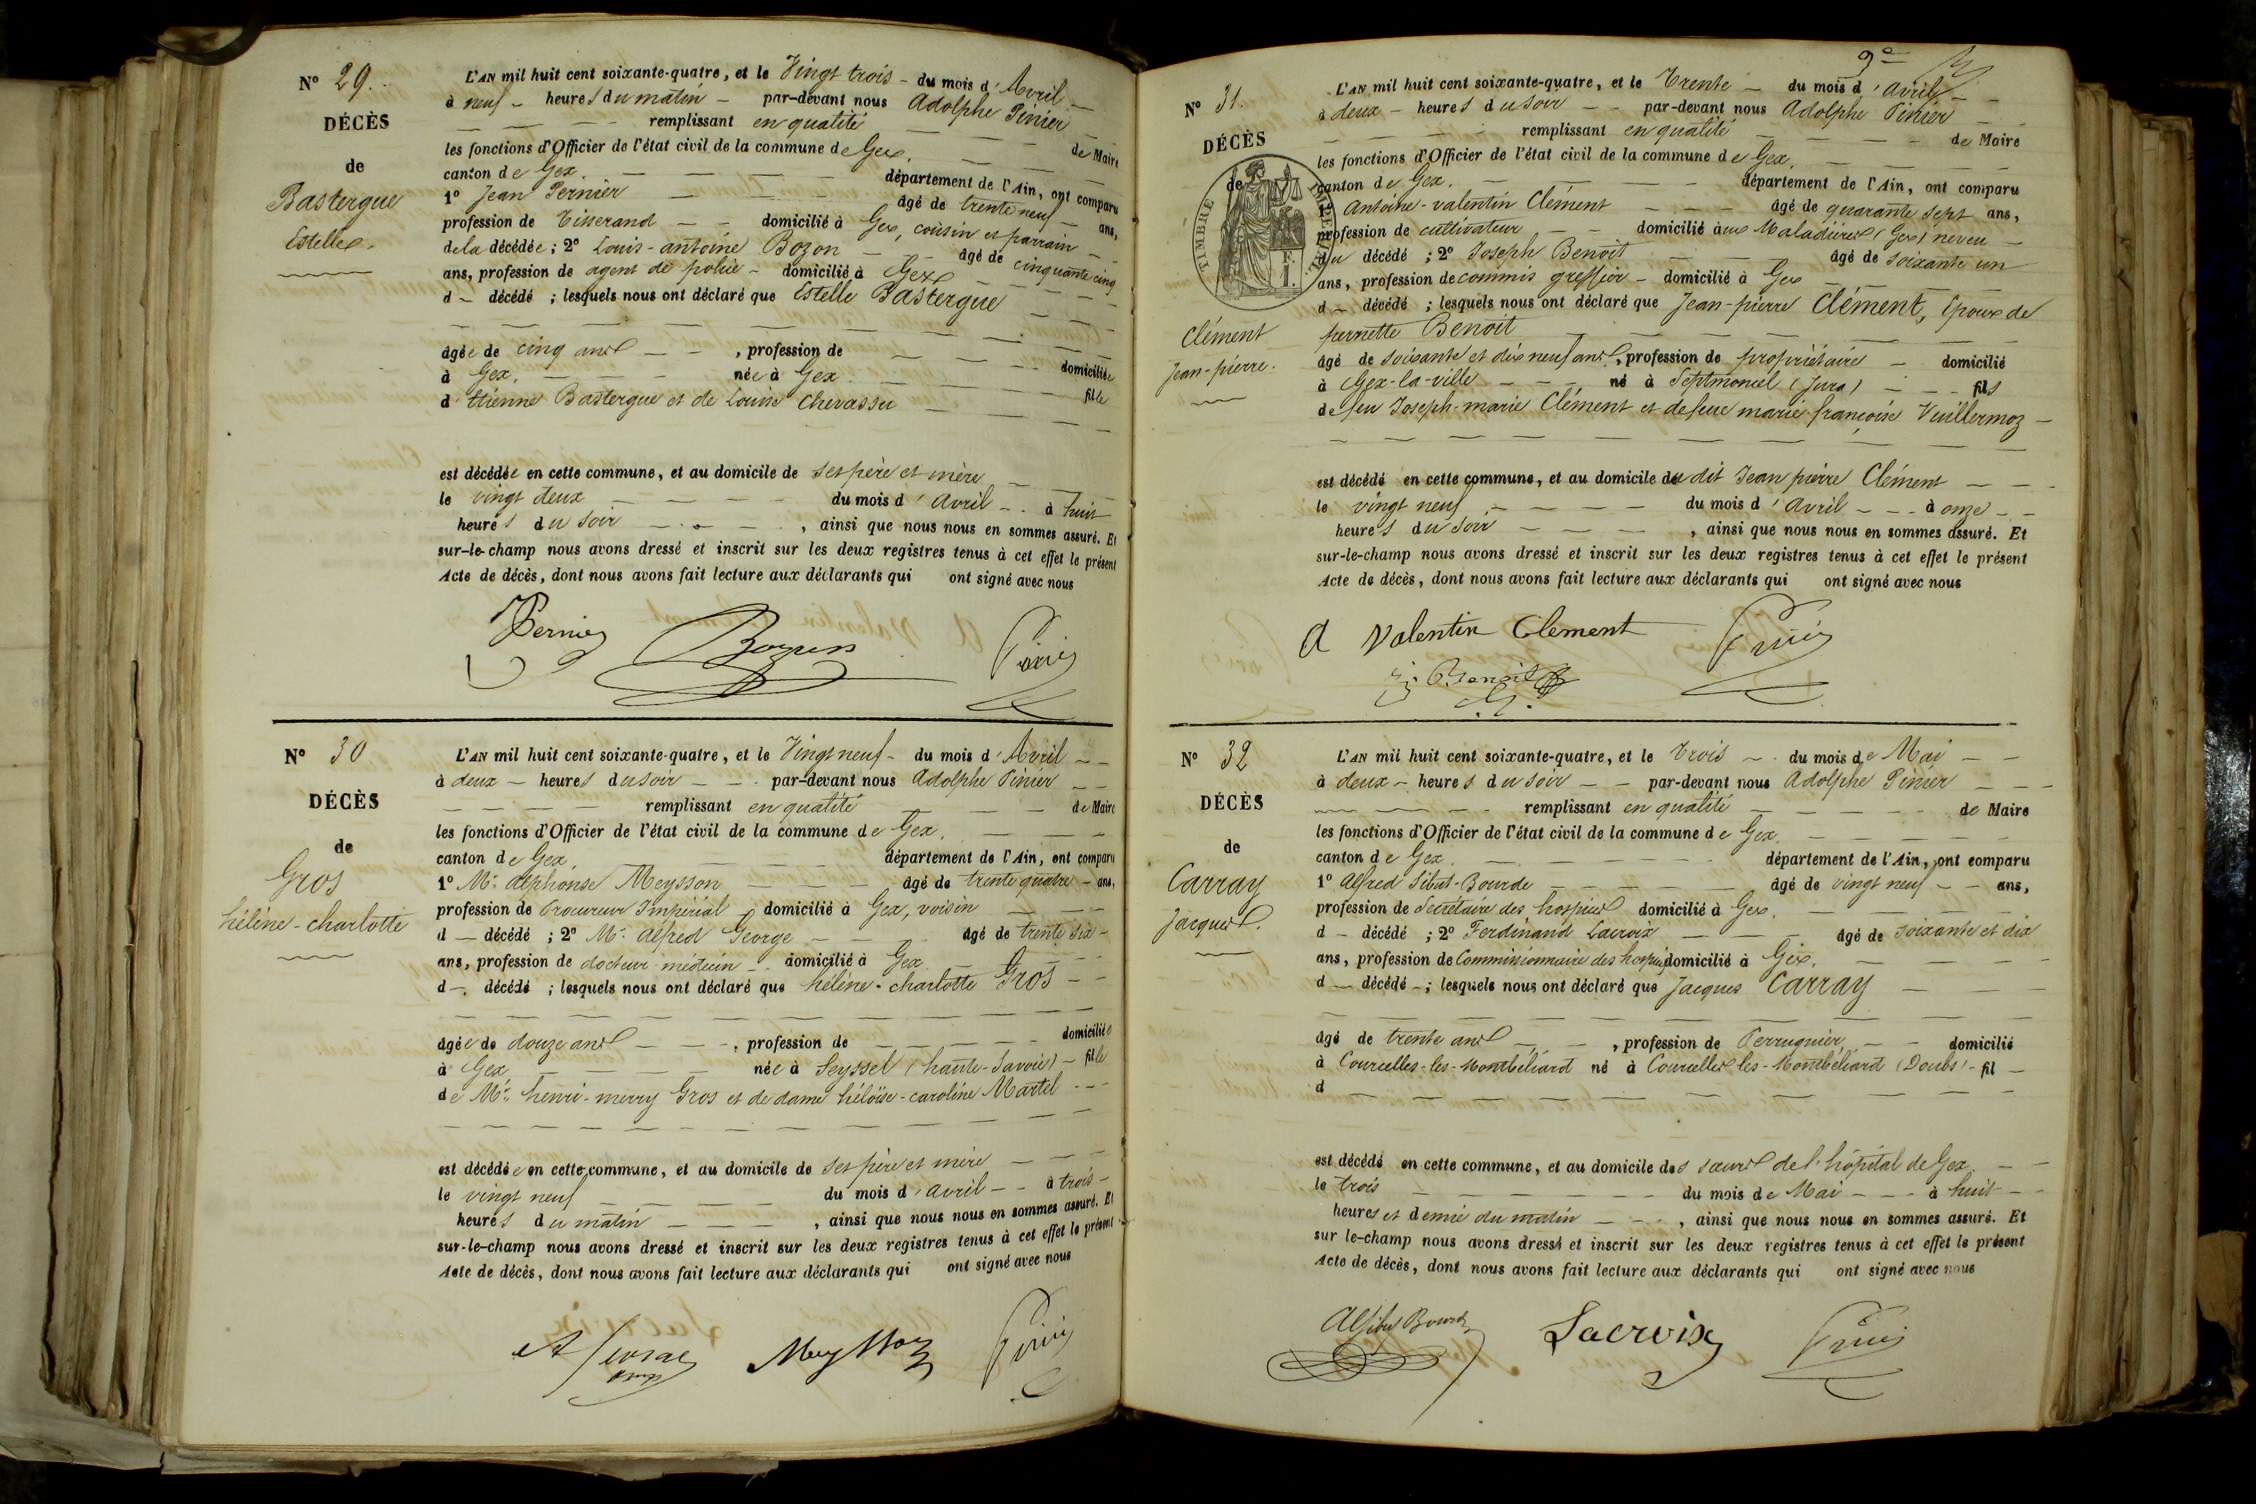 N° 29.
DÉCÈS
de
Bastergue
Estelle.
L'AN mil huit cent soixante-quatre, et le Vingt trois - du mois d'Avril
à neuf - heures du matin - par-devant nous Adolphe Pinier
remplissant en qualité de Maire
les fonctions d'Officier de l'état civil de la commune de Gex.
canton de Gex. département de l'Ain, ont comparu
1° Jean Pernier âgé de trente neuf ans,
profession de Tisserand domicilié à Gex, cousin et parrain
de la décédée ; 2° Louis-antoine Bozon âgé de cinquante cinq
ans, profession de agent de police - domicilié à Gex
d - décédé ; lesquels nous ont déclaré que Estelle Bastergue
âgée de cinq ans , profession de domiciliée
à Gex. née à Gex fille
d'étienne Bastergue et de Louise Chevassu
est décédée en cette commune, et au domicile de ses père et mère
le vingt deux du mois d'avril à huit
heures du soir , ainsi que nous nous en sommes assuré. Et
sur-le-champ nous avons dressé et inscrit sur les deux registres tenus à cet effet le présent
Acte de décès, dont nous avons fait lecture aux déclarants qui ont signé avec nous
Pernier Bozon Pinier
N° 30
DÉCÈS
de
Gros
hélène-charlotte
L'AN mil huit cent soixante-quatre, et le Vingt neuf - du mois d'Avril
à deux - heures du soir - par-devant nous Adolphe Pinier
remplissant en qualité de Maire
les fonctions d'Officier de l'état civil de la commune de Gex.
canton de Gex. département de l'Ain, ont comparu
1° Mr. alphonse Meysson âgé de trente quatre - ans,
profession de Procureur Impérial domicilié à Gex, voisin
d - décédé ; 2° Mr. alfred George âgé de trente six -
ans, profession de docteur médecin domicilié à Gex
d - décédé ; lesquels nous ont déclaré que hélène-charlotte Gros
âgée de douze ans , profession de domiciliée
à Gex née à Seyssel (haute-Savoie) - fille
de Mr. henri-merry Gros et de dame héloïse-caroline Martel
est décédée en cette commune, et au domicile de ses père et mère
le vingt neuf du mois d'avril - à trois -
heures du matin , ainsi que nous nous en sommes assuré. Et
sur-le-champ nous avons dressé et inscrit sur les deux registres tenus à cet effet le présent
Acte de décès, dont nous avons fait lecture aux déclarants qui ont signé avec nous
Meysson Pinier
9e
N° 31.
DÉCÈS
de
TIMBRE IMPÉRIAL
F.
1.
Clément
Jean-pierre.
L'AN mil huit cent soixante-quatre, et le Trente - du mois d'avril
à deux - heures du soir - par-devant nous Adolphe Pinier
remplissant en qualité de Maire
les fonctions d'Officier de l'état civil de la commune de Gex.
canton de Gex. département de l'Ain, ont comparu
Antoine-valentin Clément âgé de quarante sept ans,
profession de cultivateur domicilié aux Maladières (Gex) neveu
du décédé ; 2° Joseph Benoit âgé de soixante un
ans, profession de commis greffier - domicilié à Gex
d - décédé ; lesquels nous ont déclaré que Jean-pierre Clément, époux de
pernette Benoit
âgé de soixante et dix neuf ans, profession de propriétaire - domicilié
à Gex-la-ville né à Septmoncel (Jura) - fils
de feu Joseph-marie Clément et de feue marie-françoise Vuillermoz
est décédé en cette commune, et au domicile du dit Jean pierre Clément
le vingt neuf du mois d'avril - à onze
heures du soir , ainsi que nous nous en sommes assuré. Et
sur-le-champ nous avons dressé et inscrit sur les deux registres tenus à cet effet le présent
Acte de décès, dont nous avons fait lecture aux déclarants qui ont signé avec nous
A Valentin Clement Pinier
Benoit
N° 32
DÉCÈS
de
Carray
Jacques.
L'AN mil huit cent soixante-quatre, et le Trois - du mois de Mai
à deux - heures du soir - par-devant nous Adolphe Pinier
remplissant en qualité de Maire
les fonctions d'Officier de l'état civil de la commune de Gex.
canton de Gex. département de l'Ain, ont comparu
1° Alfred Sibut-Bourde âgé de vingt neuf - ans,
profession de Secrétaire des hospices domicilié à Gex.
d - décédé ; 2° Ferdinand Lacroix âgé de soixante et dix
ans, profession de Commissionnaire des hospices domicilié à Gex.
d - décédé - ; lesquels nous ont déclaré que Jacques Carray
âgé de trente ans , profession de Perruquier domicilié
à Courcelles-les-Montbéliard né à Courcelles-les-Montbéliard (Doubs) - fil
d
est décédé en cette commune, et au domicile des sœurs de l'hôpital de Gex
le trois du mois de Mai - à huit
heures et demie du matin , ainsi que nous nous en sommes assuré. Et
sur le-champ nous avons dressé et inscrit sur les deux registres tenus à cet effet le présent
Acte de décès, dont nous avons fait lecture aux déclarants qui ont signé avec nous
Alf Sibut Bourde Lacroix Pinier